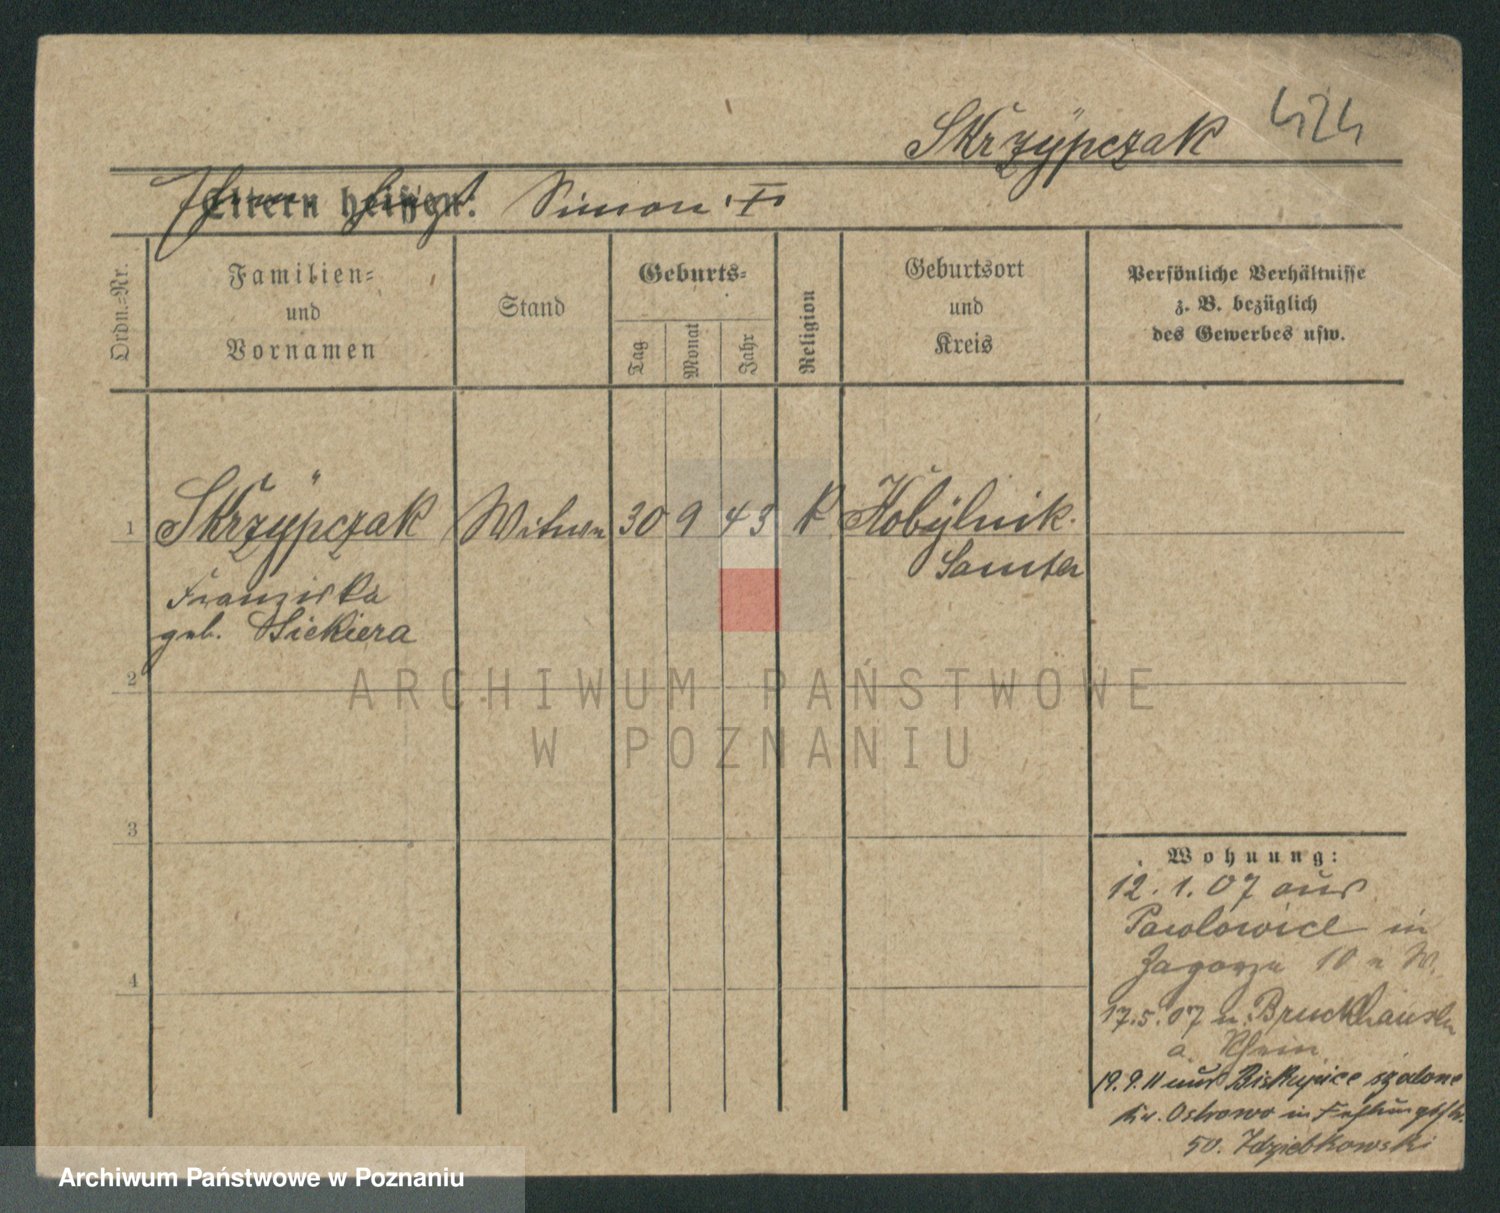 Skrzypczak 424
Eltern heißen: Simon †
Ordn.-Nr.
Familien-
und
Vornamen
Stand
Geburts-
Tag
Monat
Jahr
Religion
Geburtsort
und
Kreis
Persönliche Verhältnisse
z. B. bezüglich
des Gewerbes usw.
1 Skrzypczak Witwe 30 9 43 K Kobylnik.
Samter
Franziska
geb. Siekiera
2
ARCHIWUM PAŃSTWOWE
W POZNANIU
3
Wohnung:
12. 1. 07 aus
Pawlowice in
Zagorze 10 W.
4
17.5.07 n. Bruckhausen
a. Rhein
19.9.11 aus Biskupice szalone
Kr. Ostrowo in Festungsstr.
50. Idziebkowski
Archiwum Państwowe w Poznaniu